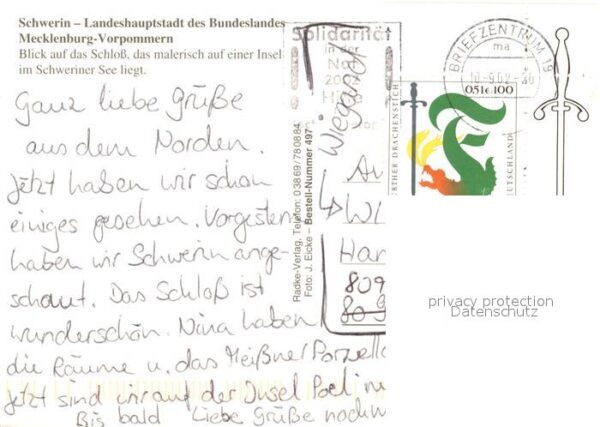 Schwerin – Landeshauptstadt des Bundeslandes
Mecklenburg-Vorpommern
Blick auf das Schloß, das malerisch auf einer Insel
im Schweriner See liegt.
Ganz liebe Grüße
aus dem Norden.
Jetzt haben wir schon
einiges gesehen. Vorgestern
haben wir Schwerin ange-
schaut. Das Schloß ist
wunderschön. Nina haben
die Räume u. das Meißner Porzella
Jetzt sind wir auf der Insel Poel
Bis bald Liebe Grüße noch
Radke-Verlag, Telefon: 03869/780884
Foto: J. Eicke – Bestell-Nummer 497
Solidarität
in der
Wiegand
WI
Han
809
BRIEFZENTRUM 19
ma
10.-9.02
0,51€ 100
DRACHENSTICH
DEUTSCHLAND
privacy protection
Datenschutz